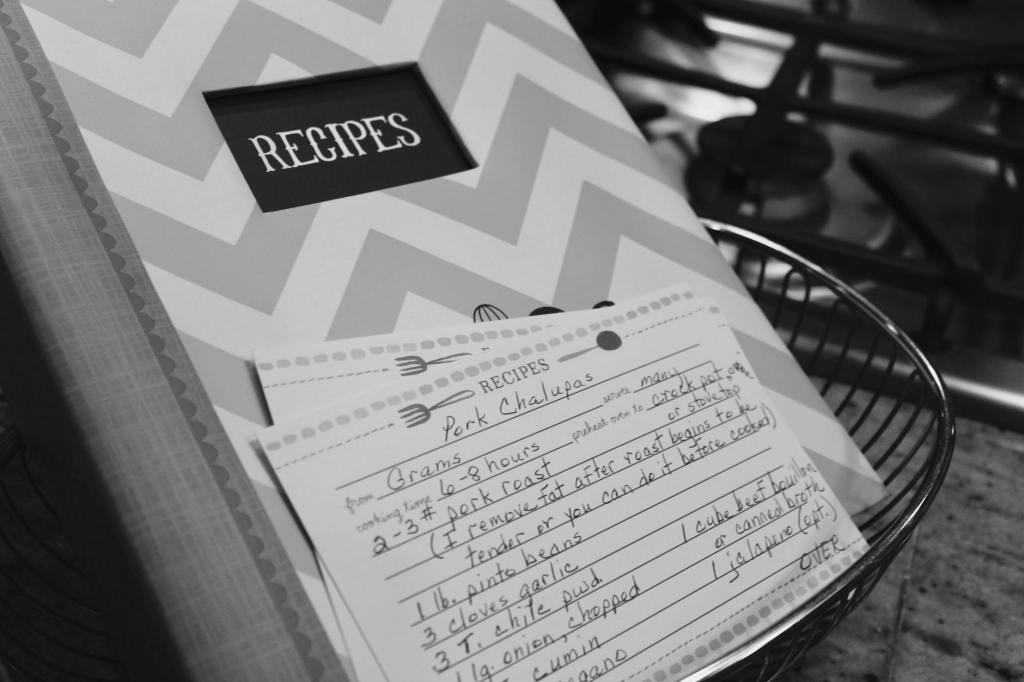 RECIPES
RECIPES
Pork Chalupas
from Grams serves many
cooking time 6-8 hours preheat oven to crock pot, oven
or stovetop
2-3# pork roast
(I remove fat after roast begins to be
tender or you can do it before cooked)
1 lb. pinto beans 1 cube beef bouillon
3 cloves garlic or canned broth
3 T. chile pwd. 1 jalapeno (opt.)
1 lg. onion, chopped OVER
cumin